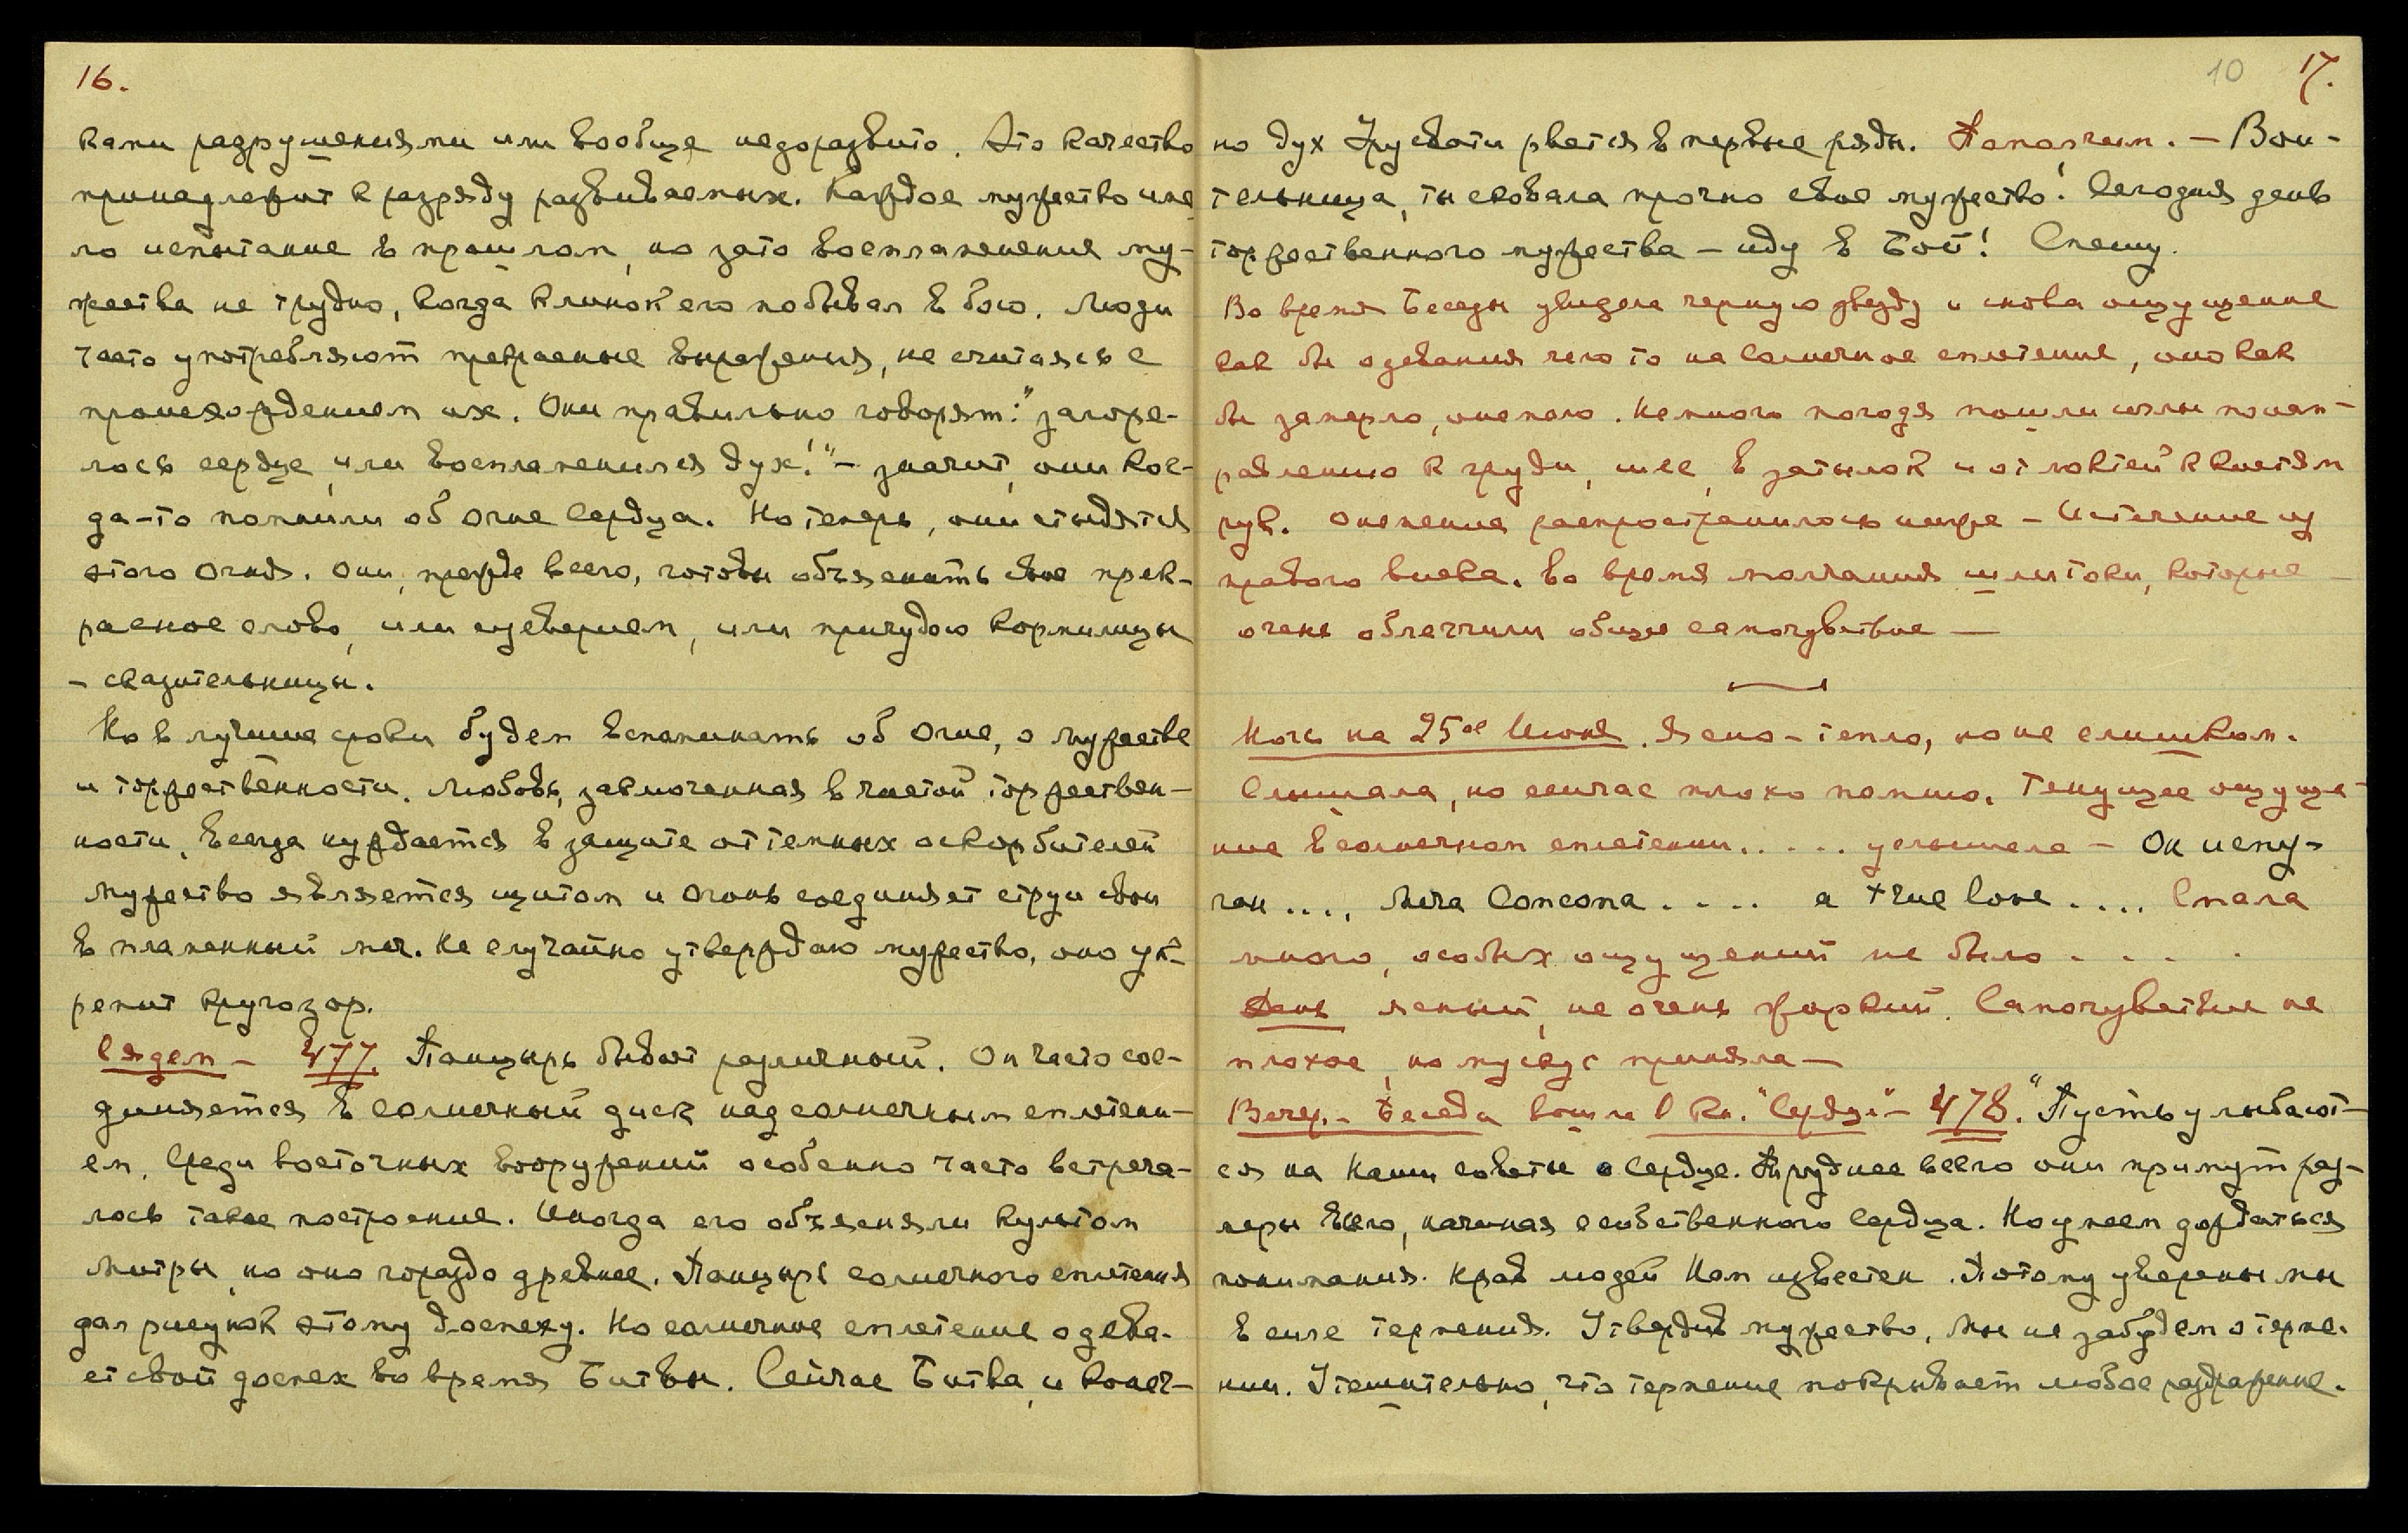 16.
ками разрушениями или вообще недоразвито. Это качество
принадлежит к разряду развиваемых. Каждое мужество име
ло испытание в прошлом, но зато воспламенения му-
жества не трудно, когда клинок его побывал в бою. Люди
часто употребляют прекрасные выражения, не считаясь с
происхождением их. Они правильно говорят: "загоре-
лось сердце, или воспламенился дух!" – значит, они ког-
да-то помнили об огне Сердца. Но теперь, они стыдятся
этого Огня. Они, прежде всего, готовы объяснить свое прек-
расное слово, или суеверием, или причудою кормилицы
- сказительницы.
Но в лучшие сроки будем вспоминать об Огне, о мужестве
и торжественности. Любовь, заключенная в чистой торжествен-
ности, всегда нуждается в защите от темных оскорбителей
Мужество является щитом и Огонь соединяет струи свои
в пламенный меч. Не случайно утверждаю мужество, оно ук-
репит кругозор.
Сядем – 477. Панцырь бывает различный. Он часто сое-
диняется в солнечный диск над солнечным сплетени-
ем. Среди восточных вооружений особенно часто встреча-
лось такое построение. Иногда его объясняли культом
Митры, но оно гораздо древнее. Панцырь солнечного сплетения
дал рисунок этому доспеху. Но солнечное сплетение одева-
ет свой доспех во время Битвы. Сейчас Битва, и конеч-
10 17.
но дух Урусвати рвется в первые ряды. Помолчим. – Вои-
тельница, ты сковала прочно свое мужество! Сегодня день
торжественного мужества – иду в Бой! Спешу.
Во время Беседы увидела черную звезду и снова ощущение
как бы одевания чего то на солнечное сплетение, оно как
бы заперло, онемело. Немного погодя пошли иглы по нап-
равлению к груди, шее, в затылок и от локтей к кистям
рук. Онемение распространилось ниже – Истечение из
правого виска. Во время молчания шли токи, которые
очень облегчили общее самочувствие —
Ночь на 25ое Июня. Ясно – тепло, но не слишком.
Слышала, но сейчас плохо помню. Текущее ощуще-
ние в солнечном сплетении..... услышала – Он испу-
ган.... Мега Concoma.... a true love.... Спала
много, особых ощущений не было....
День ясный, не очень жаркий. Самочувствие не
плохое, но мускус приняла —
Вечер. – Беседа вошла в Кн. "Сердце" – 478. "Пусть улыбают-
ся на Наши советы о Сердце. Труднее всего они примут раз-
меры всего, начиная с собственного Сердца. Но умеем дождаться
понимания. Нрав людей Нам известен. Потому уверены мы
в силе терпения. Утвердив мужество, Мы не забудем о терпе-
нии. Утешительно, что терпение покрывает любое раздражение.